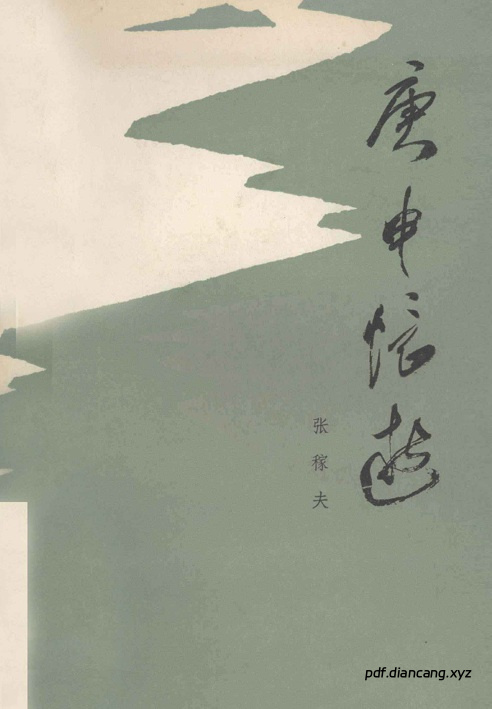 庚申憶逝
张稼夫
pdf.diancang.xyz